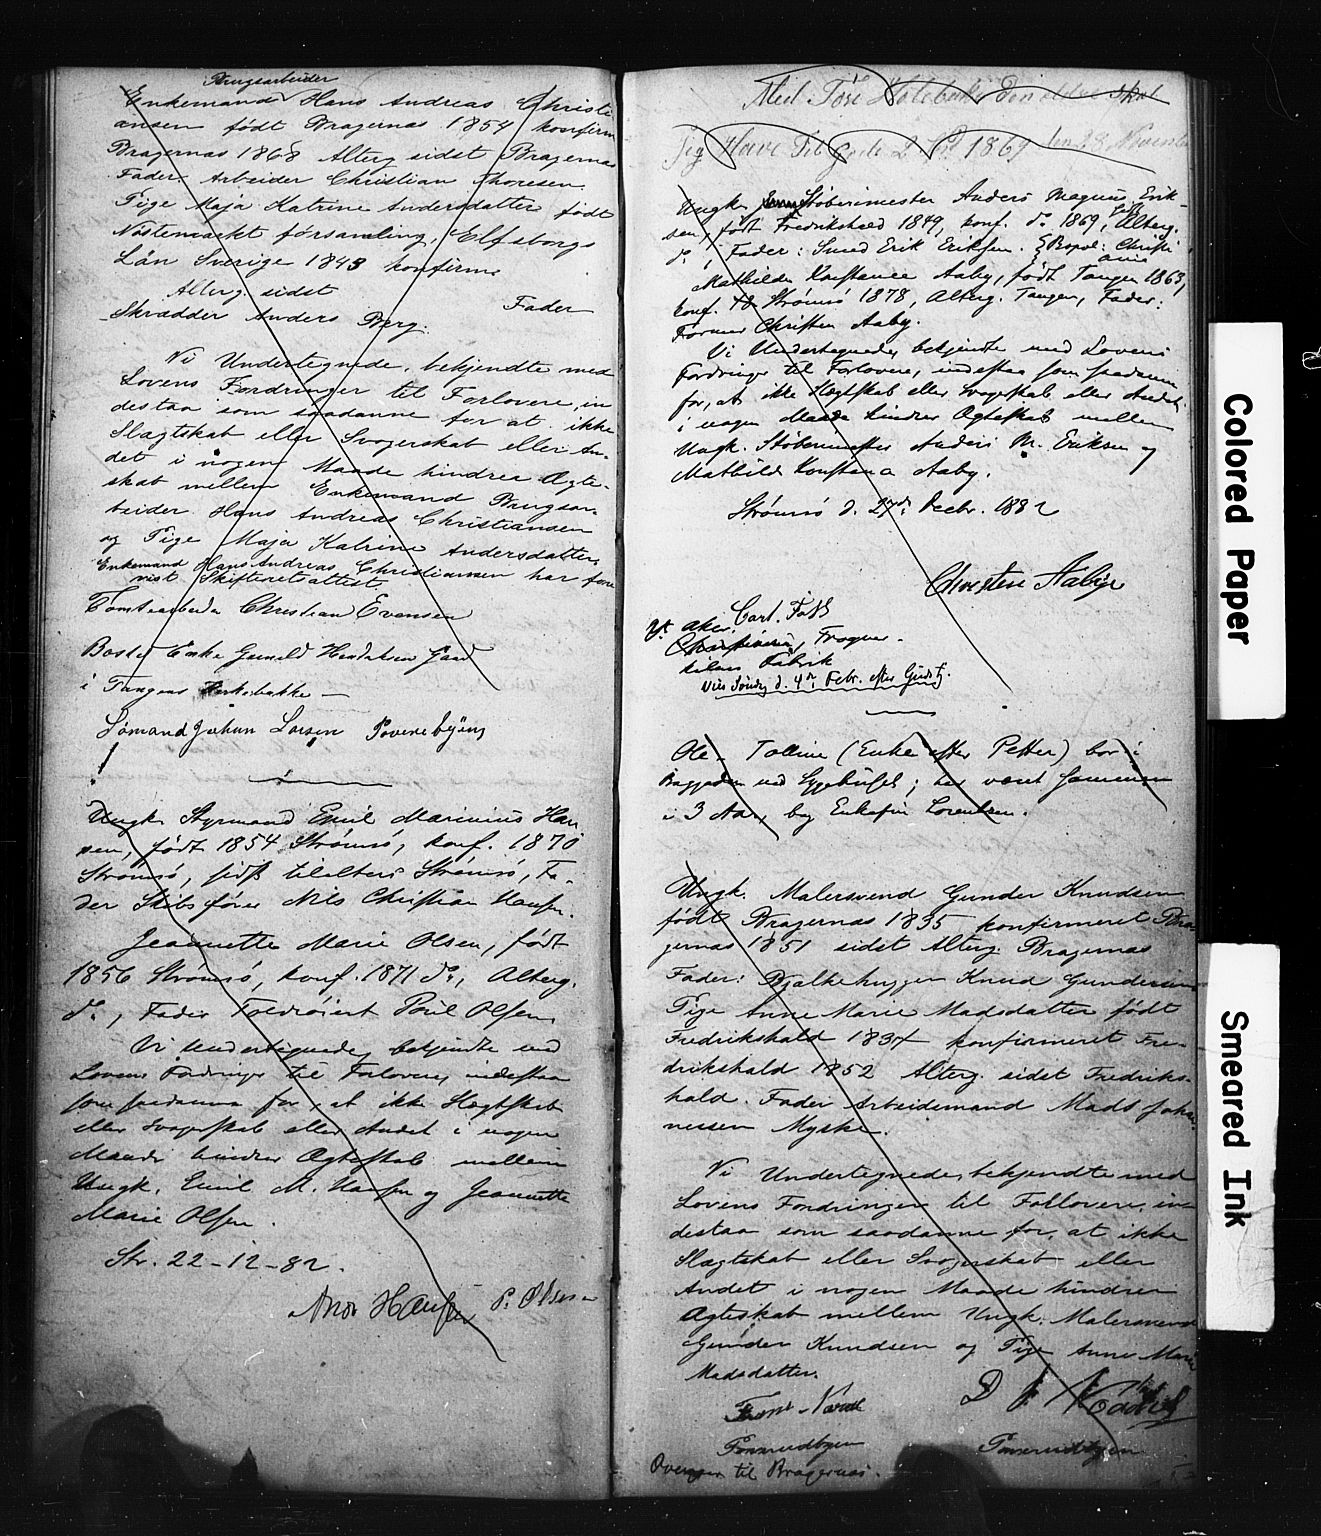 Brugsarbeider
Enkemand Hans Andreas Christi
ansen født Bragernæs 1854 konfirm
Bragernæs 1868 Alterg sidst Bragernæs
Fader Arbeider Christian Thoresen
Pige Maja Katrine Andersdatter født
församling, Elfsborgs
Län Sverige 1843 konfirm
Alterg. sidst
Fader
Skrædder Anders Berg.
Vi Undertegnede, bekjendte med
Lovens Fordringer til Forlovere, in
destaa som saadanne for at ikke
Slægtskab eller Svogerskab eller An-
det i nogen Maade hindrer Ægte-
skab mellem Enkemand Brugsar-
beider Hans Andreas Christiansen
og Pige Maja Katrine Andersdatter
Enkemand Hans Andreas Christiansen har fore
vist Skifteretsattest
Tomtearbeider Christian Evensen
i Tangens
Sømand Johan Larsen
Ungk. Styrmand Emil Marinius Han
sen, født 1854 Strømsø, konf. 1870
Strømsø, sidst tilalters Strømsø, Fa-
der Skibsfører Nils Christian Hansen.
Jeannette Marie Olsen, født
1856 Strømsø, konf. 1871 do, Alterg.
do, Fader Poul Olsen.
Vi undertegnede, bekjendte med
Lovens Fordringer til Forlovere, indestaa
som saadanne for, at ikke Slægtskab
eller Svogerskab eller Andet i nogen
Maade hindrer Ægteskab mellem
Ungk. Emil M. Hansen og Jeannette
Marie Olsen.
Str. 22-12-82.
Hansen P. Olsen
Med
Jeg Have Til gode 2 1869 den 28 November
Ungk. Støberimester Anders Magnus Erik-
sen, født Fredrikshald 1849, konf. do 1869, Alterg.
do, Fader: Smed Erik Eriksen. Bopæl: Christi
ania
Mathilde Konstance Aaby, født Tangen 1863,
konf. Strømsø 1878, Alterg. Tangen, Fader:
Former Christen Aaby.
Vi Undertegnede, bekjendte med Lovens
Fordringer til Forlovere, indestaa som saadanne
for, at ikke Slægtskab eller Svogerskab eller Andet
i nogen Maade hindrer Ægteskab mellem
Ungk. Støberimester Anders M. Eriksen og
Mathilde Konstance Aaby.
Strømsø d. 27de Decbr. 1882
Christen Aabye
V. Aker. Carl
Christiania, Frogner.
Fabrik
Vies Søndag d. 4de Febr. efter Gudst.
Ole, Talline (Enke efter Petter) bor i
ved Sygehuset; har været sammen
i 3 Aar,
Ungk. Malersvend Gunder Knudsen
født Bragernæs 1835 konfirmeret Bra-
gernæs 1851 sidst Alterg. Bragernæs
Fader: Bjælkehugger Knud Gundersen
Pige Anne Marie Madsdatter født
Fredrikshald 1837 konfirmeret Fre-
drikshald 1852 Alterg. sidst Fredriks-
hald. Fader Arbeidsmand Mads Johan
nessen Myske.
Vi Undertegnede, bekjendte med
Lovens Fordringer til Forlovere, in-
destaa som saadanne for, at ikke
Slægtskab eller Svogerskab eller
Andet i nogen Maade hindrer
Ægteskab mellem Ungk. Malersvend
Gunder Knudsen og Pige Anne Marie
Madsdatter.
til Bragernæs.
Colored Paper
Smeared Ink